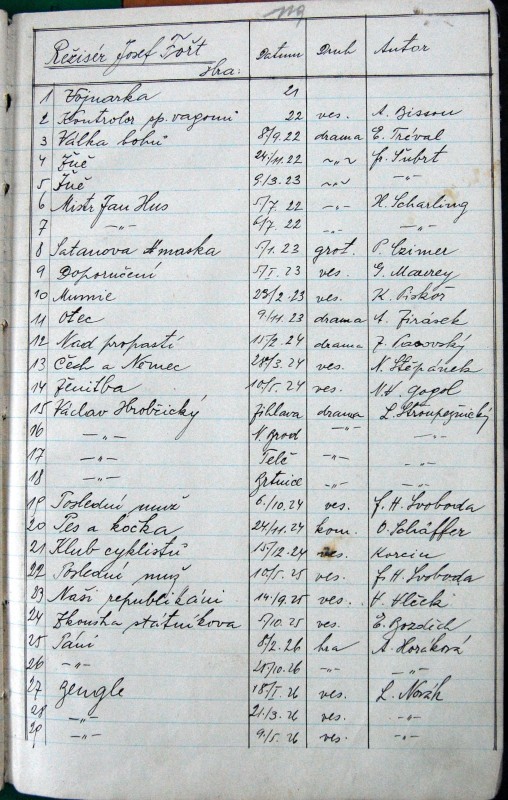 Režisér Josef Fořt
Hra: Datum Druh Autor
1 Vojnarka 21
2 Kontrolor sp. vagonů 22 ves. A. Bisson
3 Válka bohů 8/9.22 drama E. Tréval
4 Žně 24/11.22 -"- F. Šubrt
5 Žně 9/3.23 -"- -"-
6 Mistr Jan Hus 5/7. 22 -"- H. Scharling
7 -"- 6/7. 22 -"-
8 Satanova maska 5/1. 23 grot.
9 Doporučení 5/5. 23 ves. G. Maurey
10 Mumie 25/2.23 ves. K. Piskoř
11 Otec 9/11.23 drama A. Jirásek
12 Nad propastí 15/2.24 drama J.
13 Čech a Němec 20/3.24 ves. N. Štěpánek
14 Ženitba 10/5.24 ves. N.V. Gogol
15 Václav Hrobčický Jihlava drama L. Stroupežnický
16 -"- N. Brod -"- -"-
17 -"- Telč -"- -"-
18 -"- Brtnice -"- -"-
19 Poslední muž 6./10.24 ves. F. H. Svoboda
20 Pes a kočka 24/11.24 kom. O. Schäffer
21 Klub cyklistů 15/12.24 ves.
22 Poslední muž 10/5.25 ves. F. H. Svoboda
23 Naši republikáni 14./9.25 ves.
24 Zkouška státníkova 5/10.25 ves. E. Bozdích
25 Páni 8/2.26 hra A. Horáková
26 -"- 28/10.26 -"- -"-
27 Zengle 18/5.26 ves. L. Novák
28 -"- 21/3.26 ves. -"-
29 -"- 9/5.26 ves. -"-